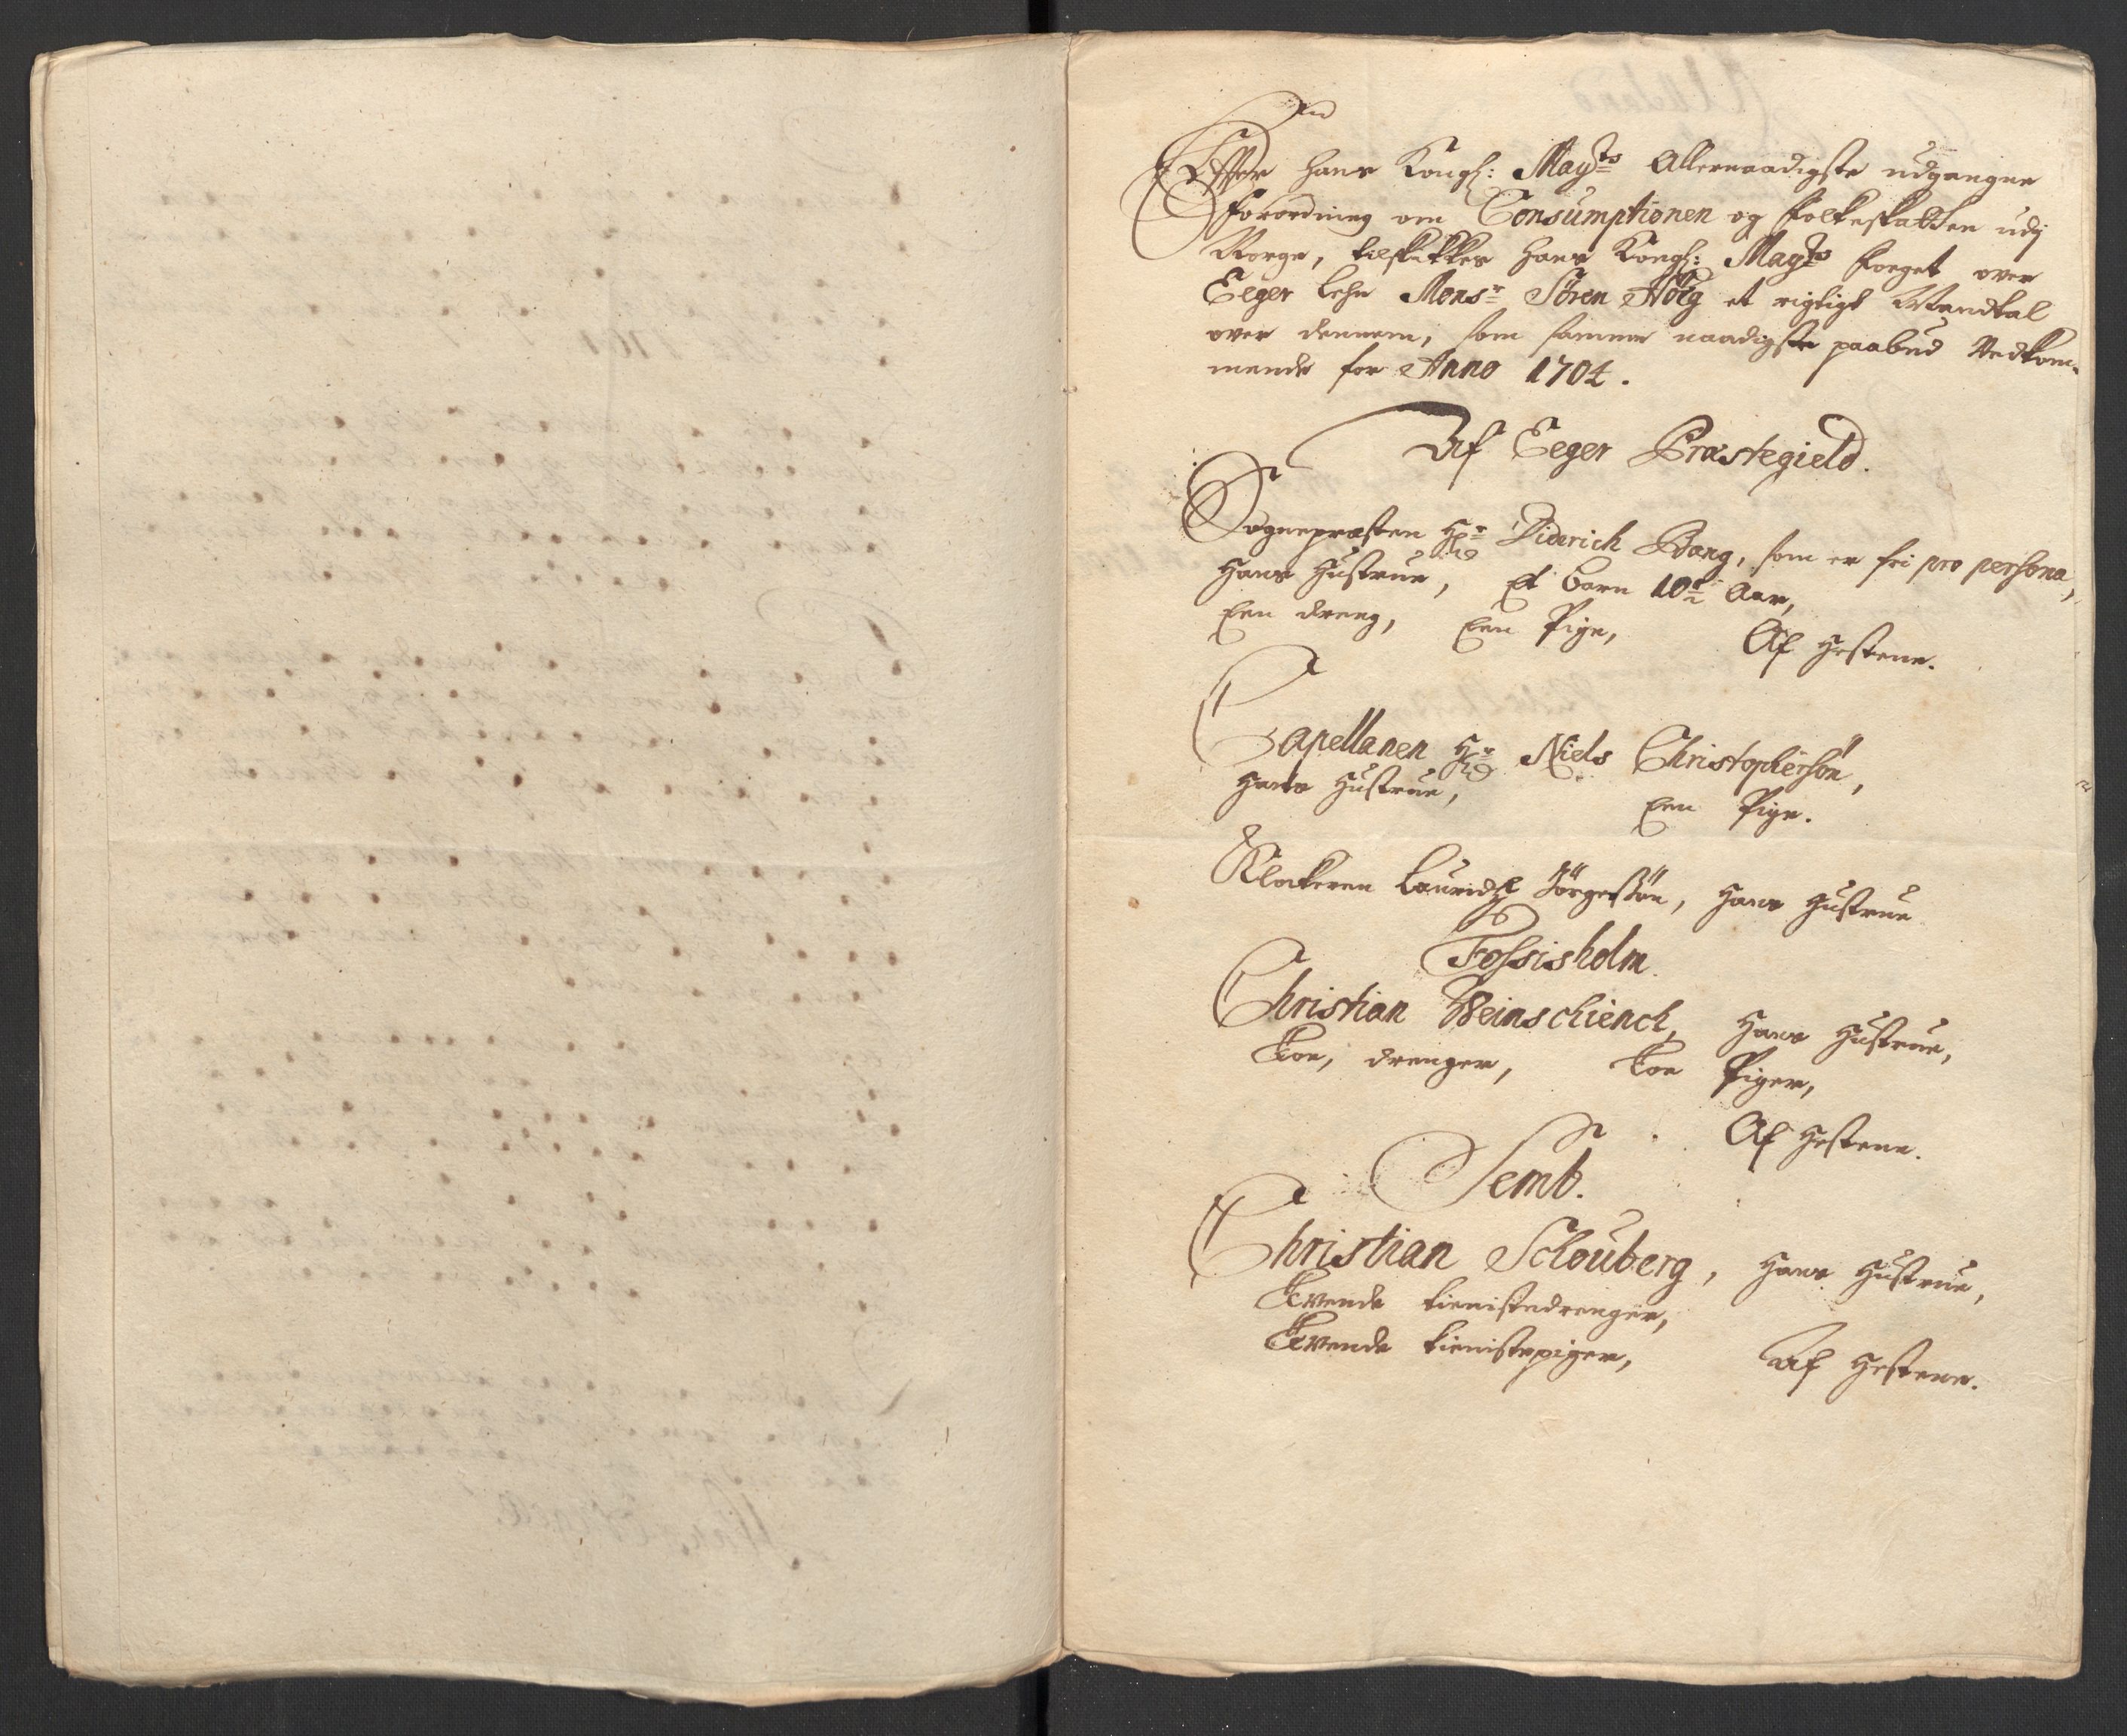 Efter hans Kongl: Mayts Allernaadigste udgangne
forordning om Consumptionen og folkeskatten udj
Norge, tilskikkes hans Kongl: Mayts foeget over
Eeger lehn Monsr Sören Höeg et rigtigt Mandtal
over dennem, som samme naadigste paabud Vedkom-
mende for Anno 1704.
Af Eeger Præstegield.
Sognepræsten Hr Diderich Bang, som er fri pro persona,
hans Hustrue, Et barn 10 Aar,
Een dreng, Een Pige, Af Hestene.
Capellanen Hr Niels Christophersön,
hans Hustrue, Een Pige.
Klokeren Lauridz Jörgensön, hans Hustrue
Fossisholm.
Christian Weinschienck, hans Hustrue,
Toe, drenger, Toe Piger,
Af Hestene.
Semb.
Christian Schouberg, hans Hustrue,
Tvende tienistedrenger,
Tvende tienistepiger, Af Hestene.